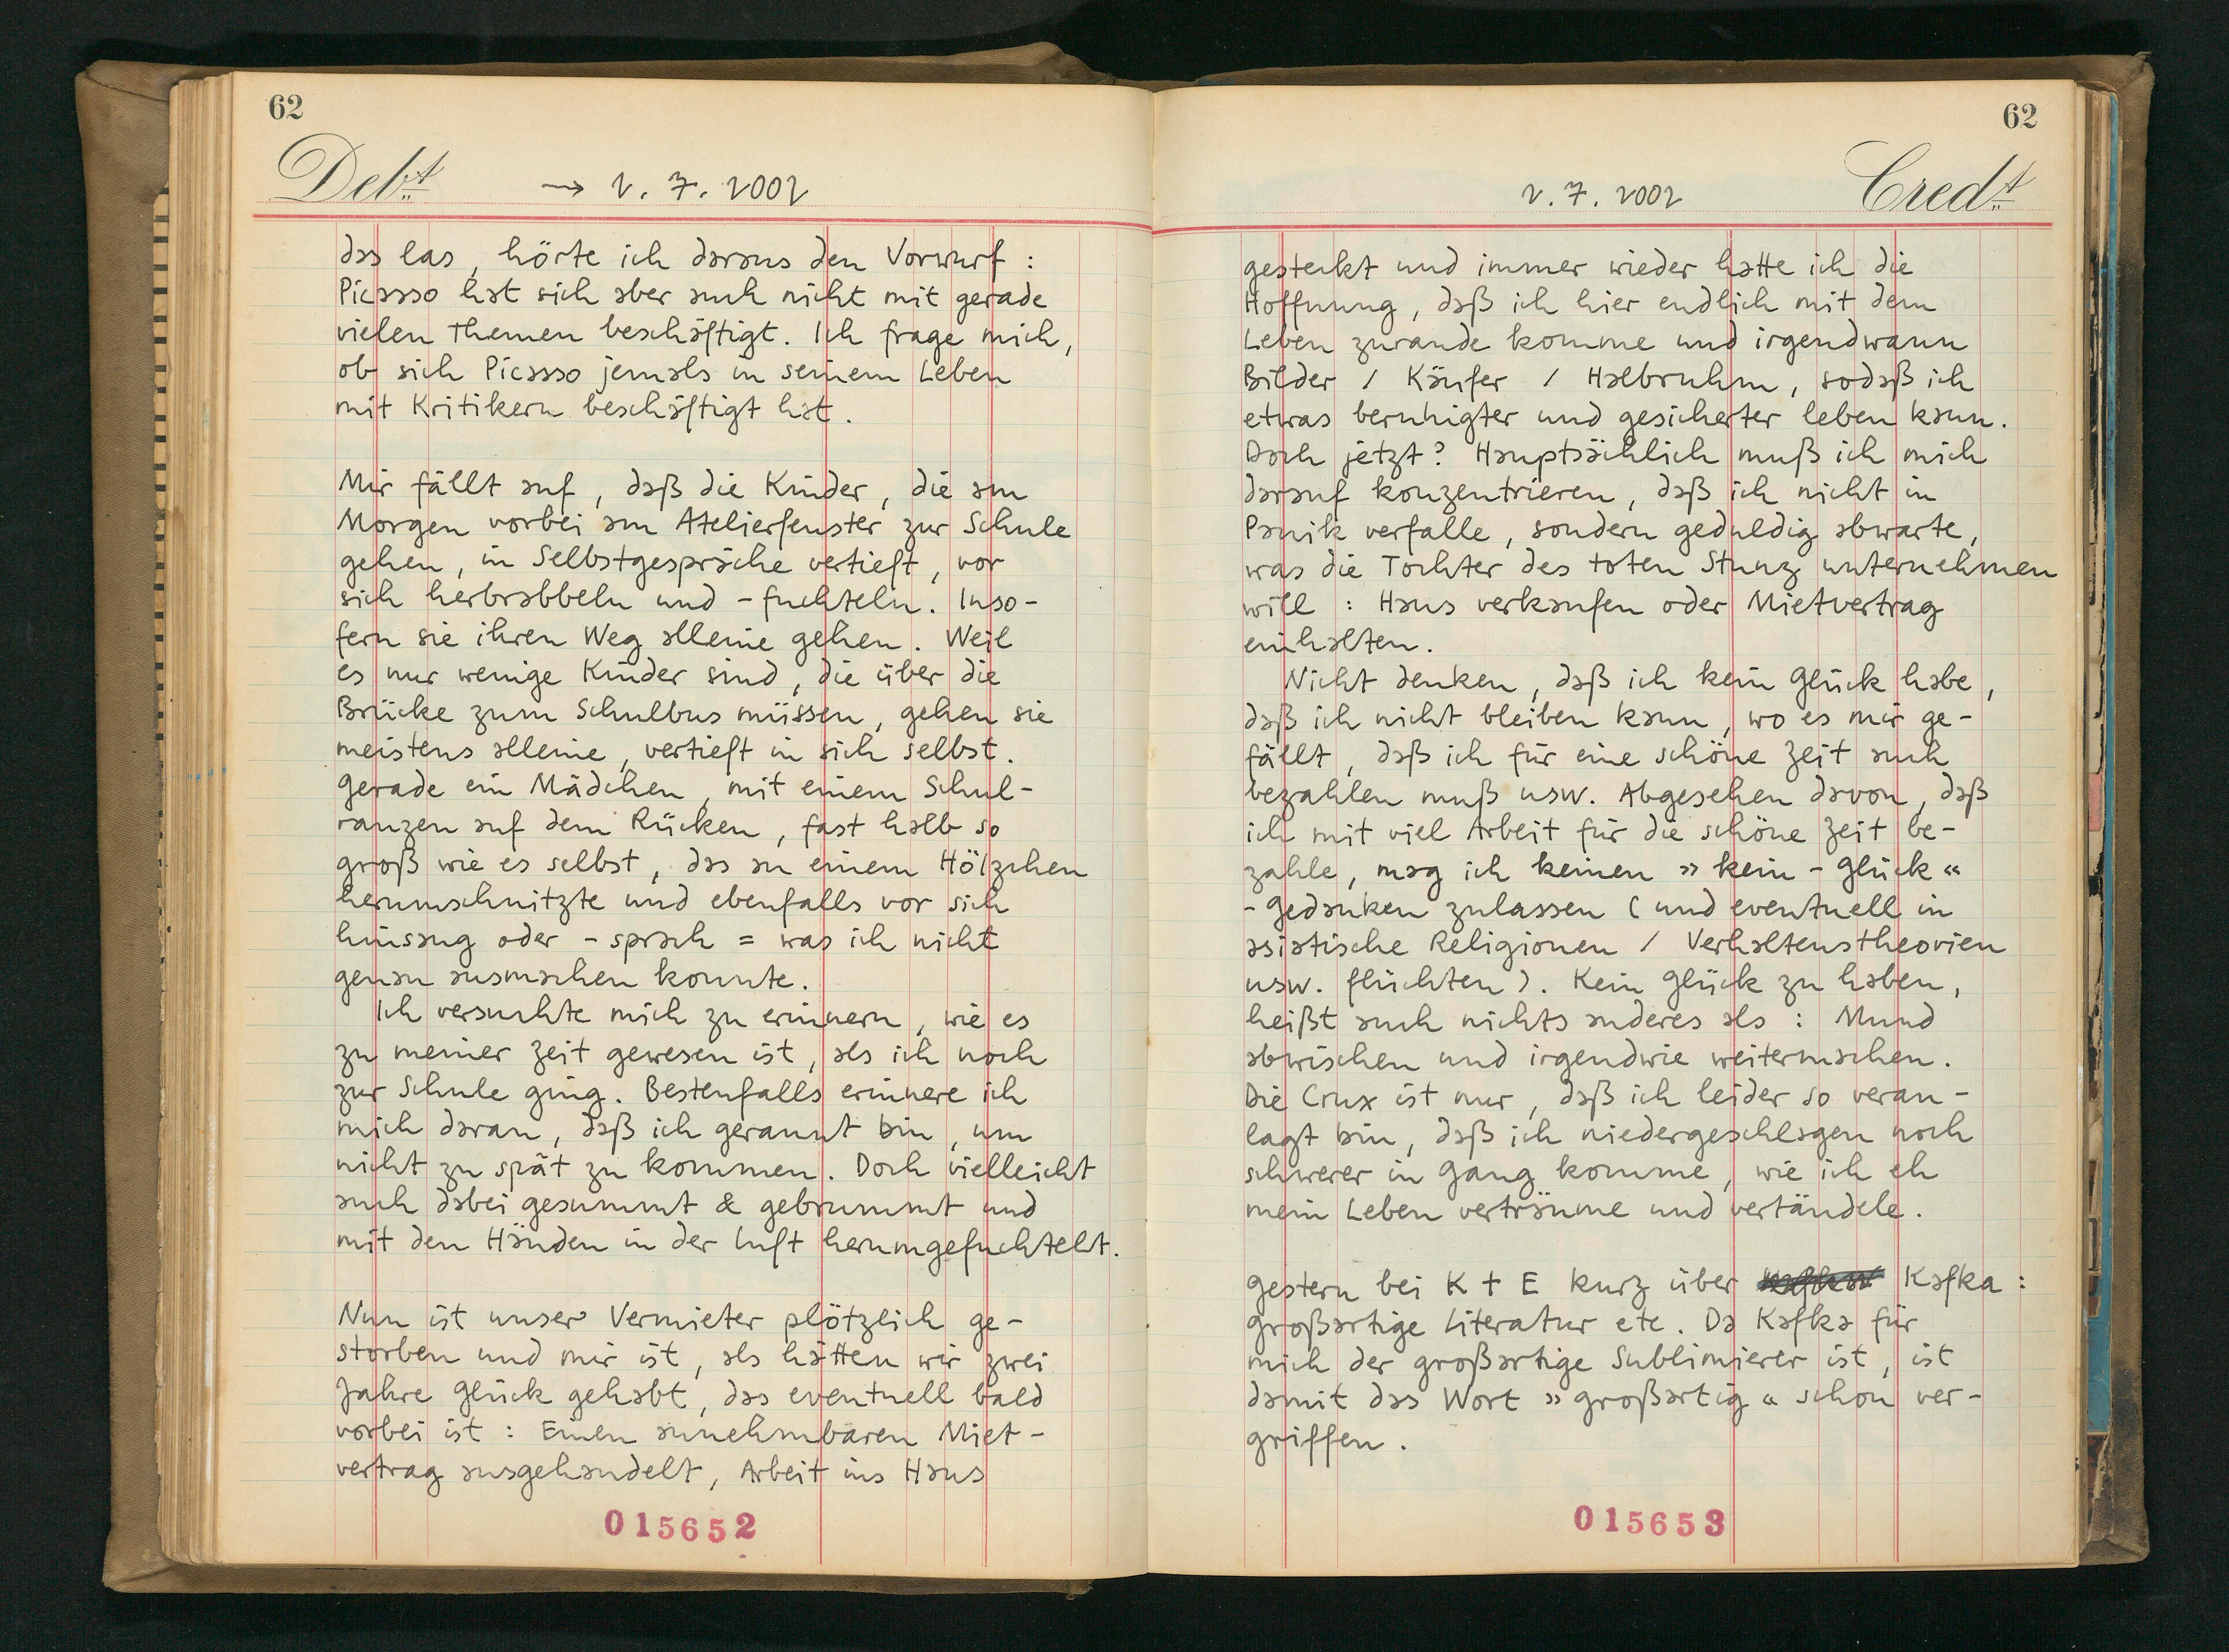 62
Debt
→ 2. 7. 2002
das las, hörte ich daraus den Vorwurf :
Picasso hat sich aber auch nicht mit gerade
vielen Themen beschäftigt. Ich frage mich,
ob sich Picasso jemals in seinem Leben
mit Kritikern beschäftigt hat.
Mir fällt auf, daß die Kinder, die am
Morgen vorbei am Atelierfenster zur Schule
gehen, in Selbstgespräche vertieft, vor
sich herbrabbeln und -fuchteln. Inso-
fern sie ihren Weg alleine gehen. Weil
es nur wenige Kinder sind, die über die
Brücke zum Schulbus müssen, gehen sie
meistens alleine, vertieft in sich selbst.
Gerade ein Mädchen, mit einem Schul-
ranzen auf dem Rücken, fast halb so
groß wie es selbst, das an einem Hölzchen
herumschnitzte und ebenfalls vor sich
hinsang oder -sprach = was ich nicht
genau ausmachen konnte.
Ich versuchte mich zu erinnern, wie es
zu meiner Zeit gewesen ist, als ich noch
zur Schule ging. Bestenfalls erinnere ich
mich daran, daß ich gerannt bin, um
nicht zu spät zu kommen. Doch vielleicht
auch dabei gesummt & gebrummt und
mit den Händen in der Luft herumgefuchtelt.
Nun ist unser Vermieter plötzlich ge-
storben und mir ist, als hätten wir zwei
Jahre Glück gehabt, das eventuell bald
vorbei ist : Einen annehmbaren Miet-
vertrag ausgehandelt, Arbeit ins Haus
015652
62
2. 7. 2002
Credt
gesteckt und immer wieder hatte ich die
Hoffnung, daß ich hier endlich mit dem
Leben zurande komme und irgendwann
Bilder / Käufer / Halbruhm, sodaß ich
etwas beruhigter und gesicherter leben kann.
Doch jetzt? Hauptsächlich muß ich mich
darauf konzentrieren, daß ich nicht in
Panik verfalle, sondern geduldig abwarte,
was die Tochter des toten Stunz unternehmen
will : Haus verkaufen oder Mietvertrag
einhalten.
Nicht denken, daß ich kein Glück habe,
daß ich nicht bleiben kann, wo es mir ge-
fällt, daß ich für eine schöne Zeit auch
bezahlen muß usw. Abgesehen davon, daß
ich mit viel Arbeit für die schöne Zeit be-
zahle, mag ich keinen »kein-Glück«
-Gedanken zulassen (und eventuell in
asiatische Religionen / Verhaltenstheorien
usw. flüchten). Kein Glück zu haben,
heißt auch nichts anderes als : Mund
abwischen und irgendwie weitermachen.
Die Crux ist nur, daß ich leider so veran-
lagt bin, daß ich niedergeschlagen noch
schwerer in Gang komme, wie ich eh
mein Leben verträume und vertändele.
Gestern bei K + E kurz über Kafka :
großartige Literatur etc. Da Kafka für
mich der großartige Sublimierer ist, ist
damit das Wort »großartig« schon ver-
griffen.
015653